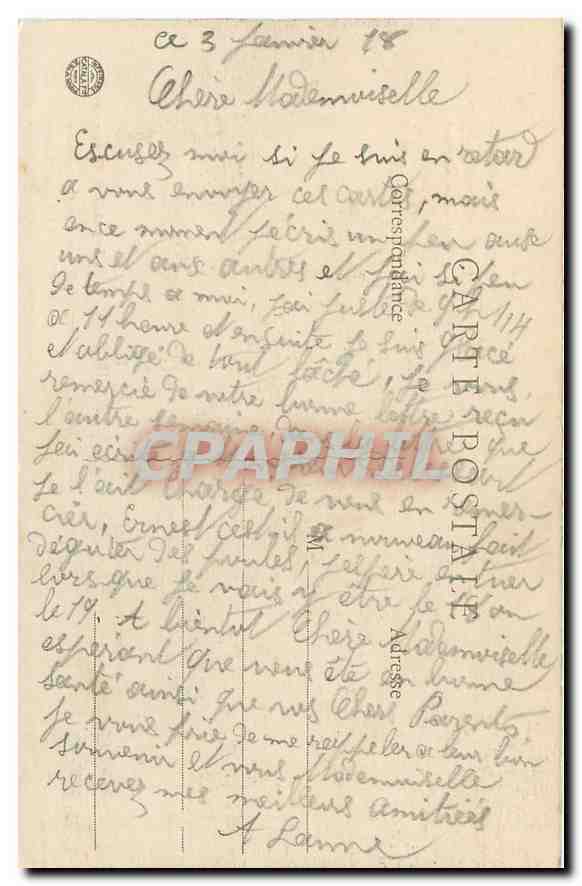 ce 3 Janvier 18
Chère Mademoiselle
Escusez moi si je suis en retard
a vous envoyer ces cartes, mais
en ce moment j'écris un peu aux
uns et aux autres et j'ai si peu
de temps a moi, j'ai juste de 9h 1/4
a 11 heure et ensuite je suis placé
et obligé de tout lâché, je vous
remercie de votre bonne lettre reçu
l'autre semaine
j'ai ecrit que
je l'ait chargé de vous en remer-
cier, Ernest c'est il a nouveau fait
déguster des poules, j'espère en tuer
lorsque je vais y être le 18 ou
le 19. A bientôt Chère Mademoiselle
espérant que vous ête en bonne
santé ainsi que vos Chers Parents
je vous prie de me rappeler a leur bon
souvenir et vous Mademoiselle
recevez mes meilleurs amitiées
A
CARTE POSTALE
Correspondance
Adresse
M
CPAPHIL